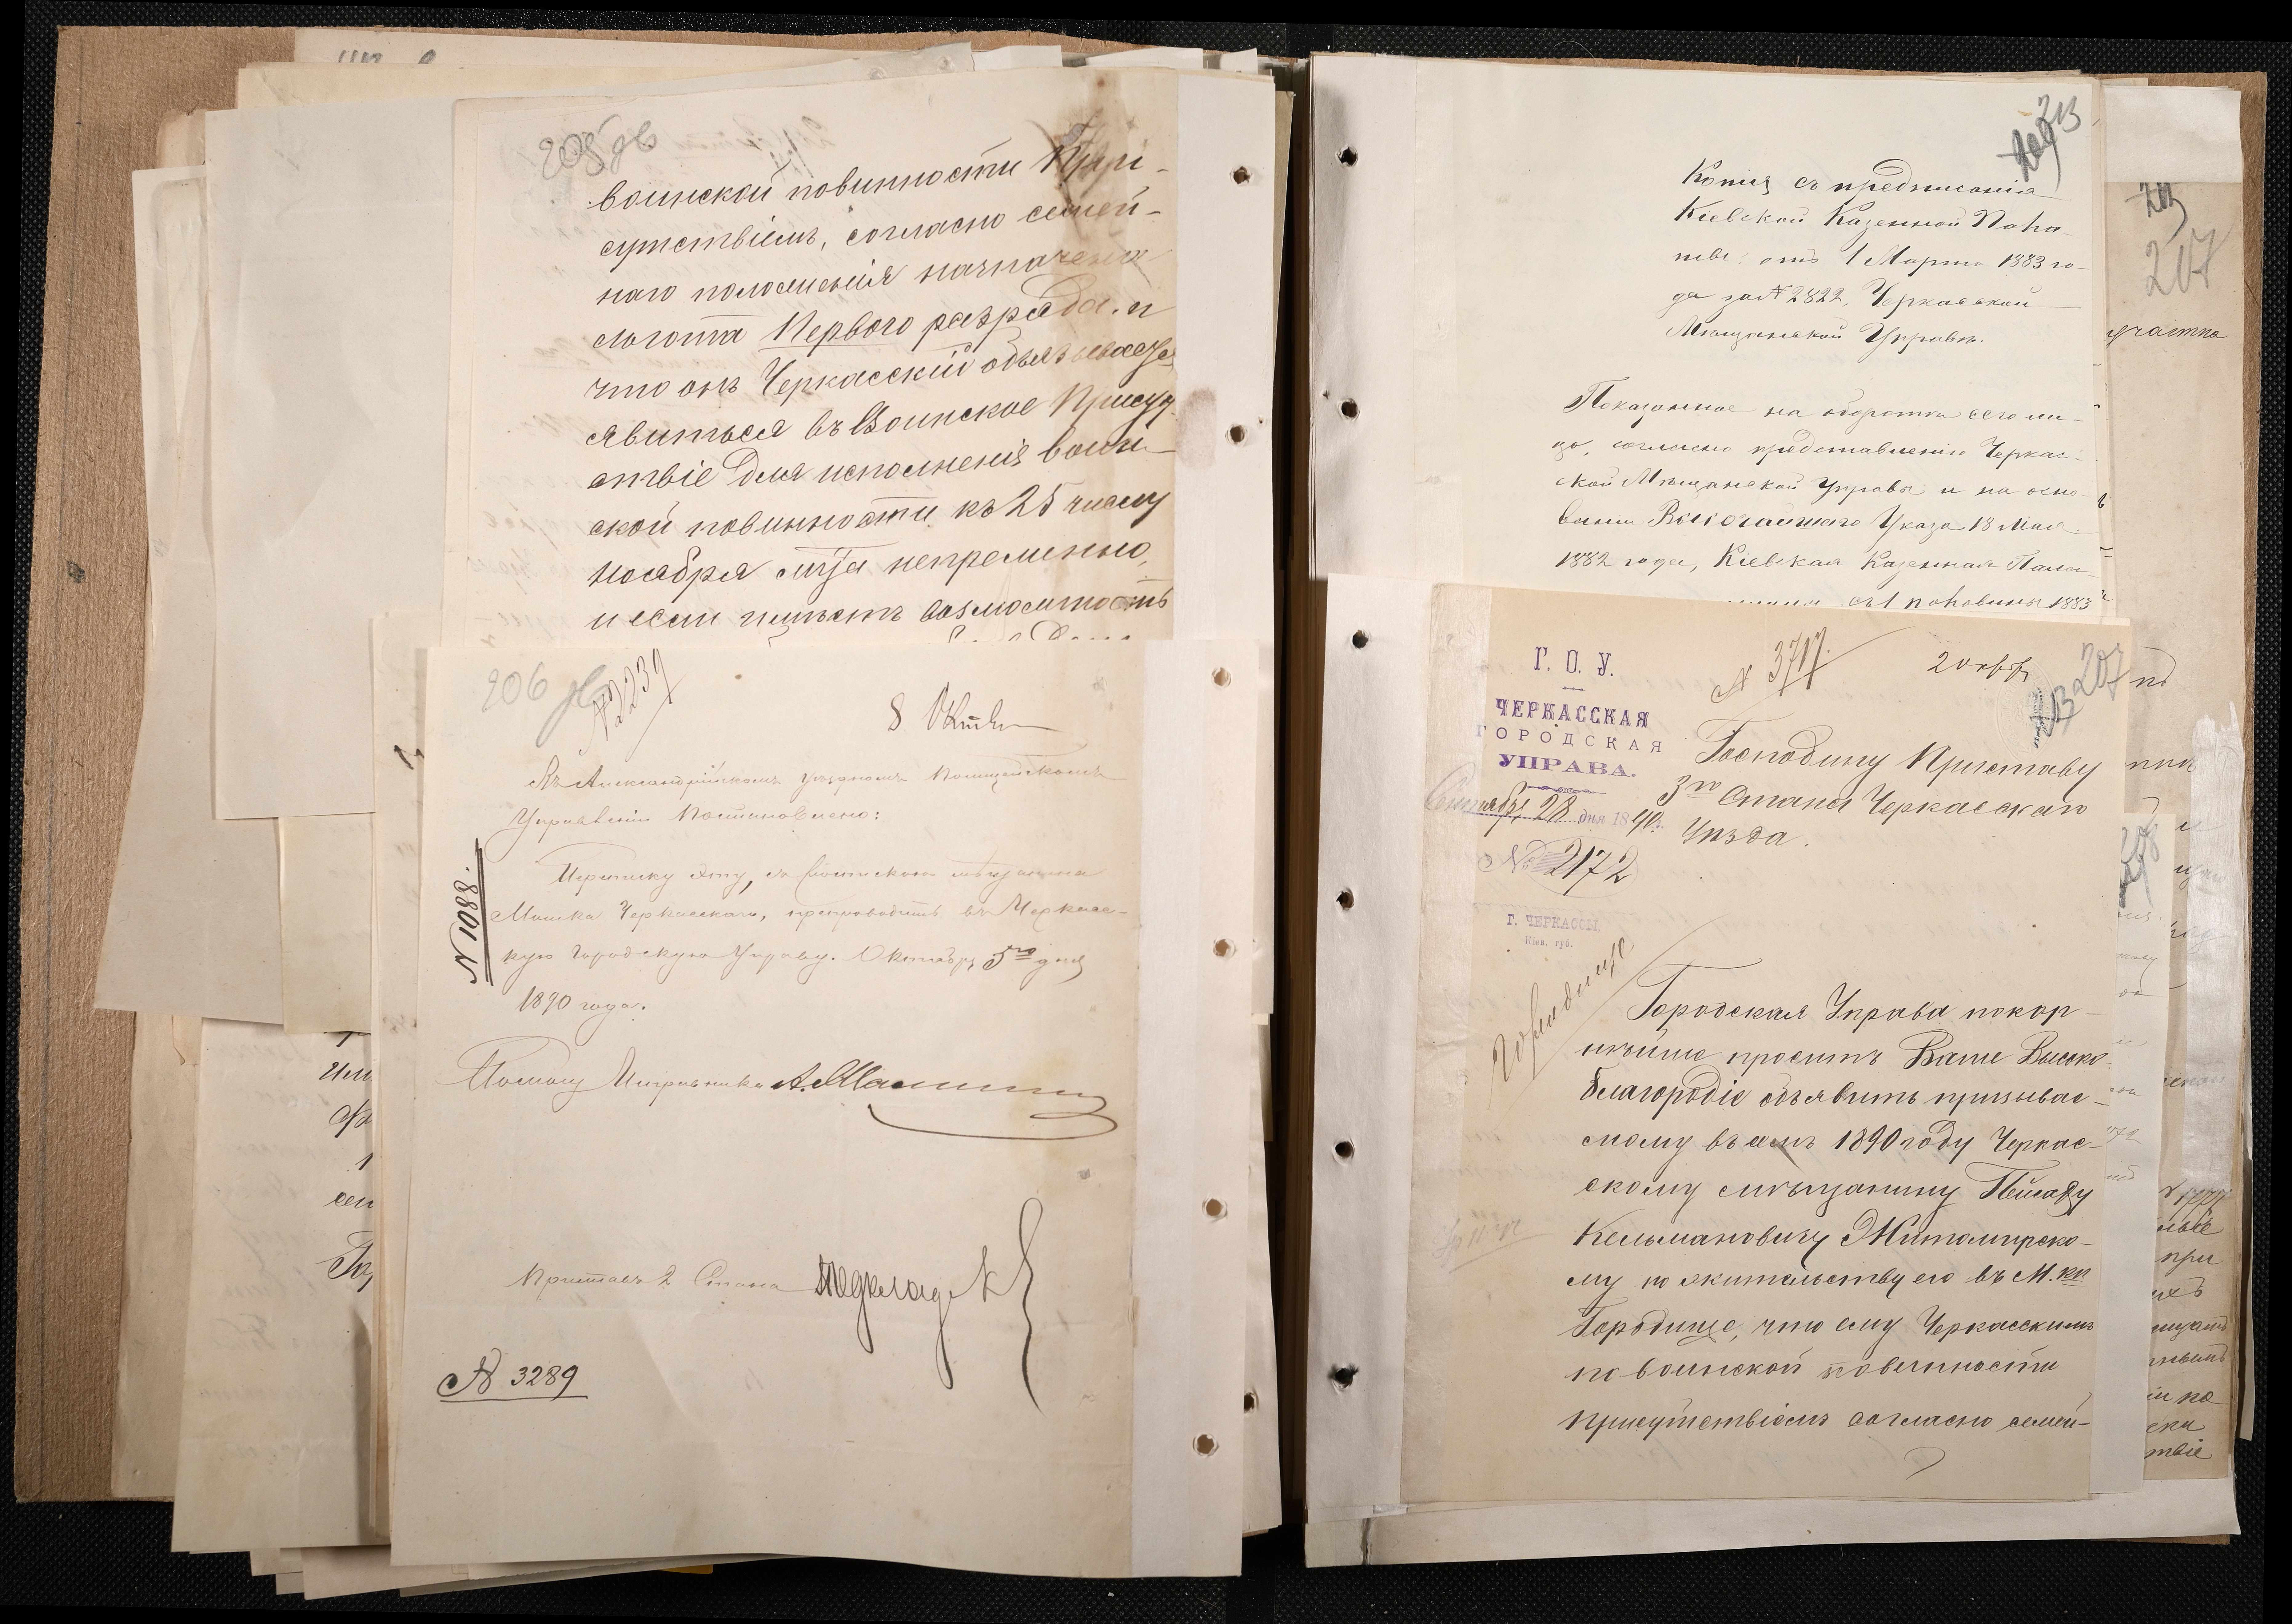 205 об
воинской повинности При-
сутствіемъ, согласно семей-
наго положенія назначена
льгота Перваго разряда. и
что онъ Черкасскій обязывается
явиться въ Воинское Присут
ствіе для исполненія воин-
ской повинности къ 25 числу
ноября мца непременно,
и если имѣетъ возможность
206 об
№ 2239
8 Октяб
Въ Александрійскомъ уѣздномъ Полицейскомъ
Управленіи Постановлено:
№ 1088.
Переписку эту, съ подпискою мѣщанина
Мошка Черкасскаго, препроводить въ Черкас-
кую Городскую Управу. Октября 5го дня
1890 года.
Помощ Исправника А.
Приставъ 2 Стана
№ 3289
213
Копія съ предписанія
Кіевской Казенной Пала-
ты отъ 1 Марта 1883 го-
да за № 2822, Черкасской
Мѣщанской Управѣ.
Показанное на оборотѣ сего ли-
цо, согласно представленію Черкас-
ской Мѣщанской Управы и на осно-
ваніи Высочайшаго Указа 18 Мая
1882 года, Кіевская Казенная Пала-
съ 1 половины 1883
207
участка
Г. О. У.
ЧЕРКАССКАЯ
ГОРОДСКАЯ
УПРАВА.
Сентября 28 дня 1890 г.
№ 2172
Г. ЧЕРКАССЫ,
Кіев. губ.
№ 3717.
2 октяб
207
213
Господину Приставу
3го Стана Черкасскаго
Уѣзда.
Городище
Городская Управа покор-
нѣйше проситъ Ваше Высоко-
благородіе объявить призывае-
мому въ семъ 1890 году Черкас-
скому мѣщанину
Кельмановичу Житомирско-
му по жительству его въ М.
Городище, что ему Черкасскимъ
по воинской повинности
Присутствіемъ согласно семей-